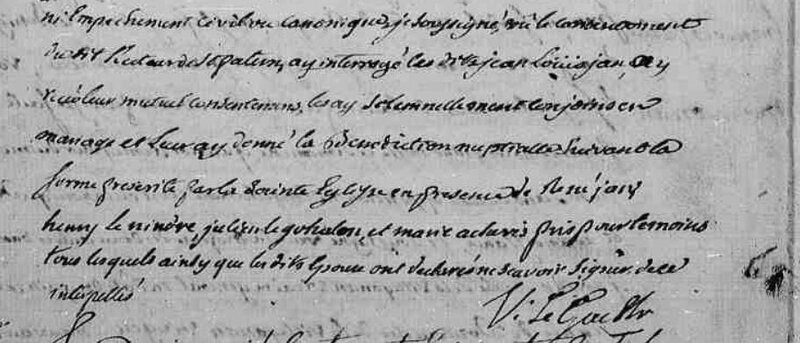 ni Empechement civil ou canonique, je soussigné, vu le consentement
dudit Recteur de St patern, ay interrogé les dits jean Louis jan, ay
recû leur mutuel consentement, les ay solemnellement conjoins en
mariage et leur ay donné la Benediction nuptialle suivant la
forme prescrite par la sainte Eglise en presence de René jan,
henry le ninère, julien le gohalon, et marie pris pour temoins
tous lesquels ainsy que les dits Epoux ont declarés ne scavoir signer de ce
interpellés
V: Le